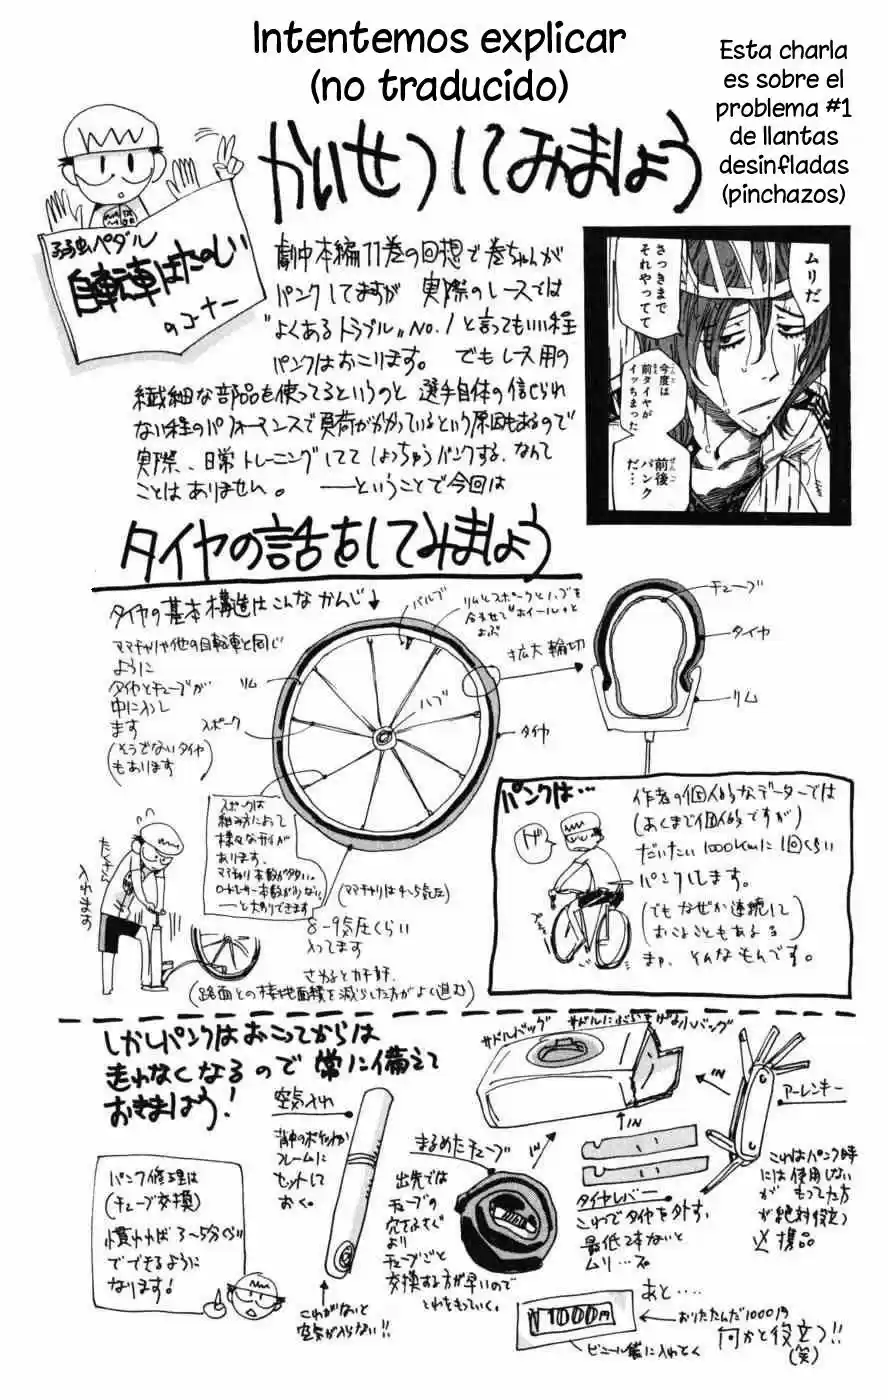 Intentemos explicar
(no traducido)
Esta charla
es sobre el
problema #1
de llantas
desinfladas
(pinchazos)
かいせつしてみましょう
弱虫ペダル
自転車はたのしい
のコーナー
劇中本編11巻の回想で巻ちゃんが
パンクしてますが 実際のレースでは
"よくあるトラブル"NO.1と言ってもいい程
パンクはおこります。 でもレース用の
繊細な部品を使ってるというのと 選手自体の信じられ
ない程のパフォーマンスで負荷がかかっているという原因もあるので
実際、日常トレーニングしてて しょっちゅうパンクする、なんて
ことはありません。 ──ということで今回は
ムリだ
さっきまで
それやってて
今度は
前タイヤが
イッちまった
前後
パンク
だ…
タイヤの話をしてみましょう
タイヤの基本構造はこんなかんじ↓
ママチャリや他の自転車と同じ
ように
タイヤとチューブが
中に入っし
ます
(そうでないタイヤ
もあります)
バルブ
リムとスポークとハブを
合わせて"ホイール"と
よぶ
リム
スポーク
ハブ
タイヤ
拡大輪切
チューブ
タイヤ
リム
スポークは
組み方によって
様々な形が
あります。
ママチャリ 本数が多い。
ロードレーサー本数が少ない。
(ママチャリは4~5気圧)
8-9気圧くらい
入ってます
さわるとカチカチ
(路面との接地面積を減らした方がよく進む)
入れます
パンクは…
ゲ
作者の個人的なデーターでは
(あくまで個人的ですが)
だいたい1000kmに1回くらい
パンクします。
(でもなぜか連続して
おこることもある)
まァ、そんなもんです。
しかしパンクはおこってからは
走れなくなるので常に備えて
おきましょう!
パンク修理は
(チューブ交換)
慣れれば3~5分くらい
でできるように
なります!
空気入れ
背中のポケットか
フレームに
セットして
おく。
これがないと
空気が入らない!!
まるめたチューブ
出先では
チューブの
穴をふさぐ
より
チューブごと
交換する方が早いので
これをもっていく。
サドルバッグ
サドルにぶらさげる小バッグ
IN
IN
IN
タイヤレバー
これでタイヤを外す。
最低2本ないと
ムリ…ズ
アーレンキー
これはパンク時
には使用しない
が もってた方
が絶対役立つ
必携品
あと…‥
¥1000円
←おりたたんだ1000円
何かと役立つ!!
(笑)
ビニール袋に入れとく